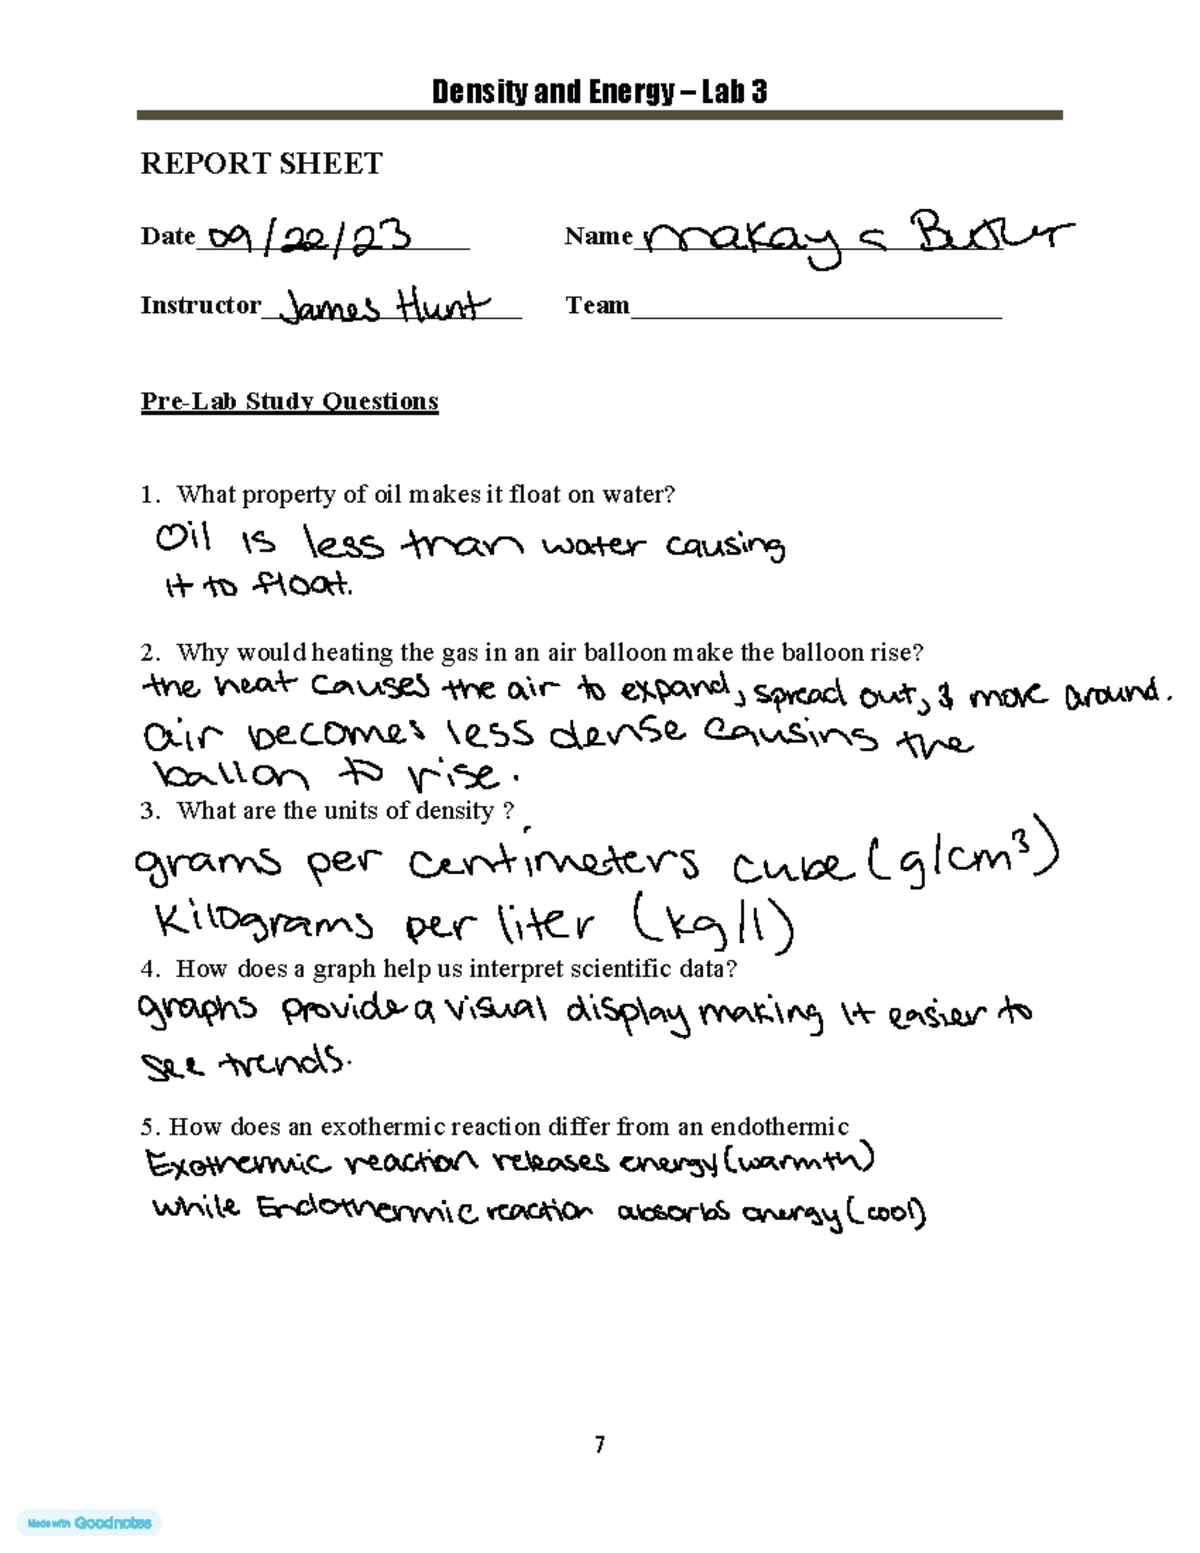 Density and Energy – Lab 3
REPORT SHEET
Date 09/22/23 Name Makaya Butler
Instructor James Hunt Team
Pre-Lab Study Questions
1. What property of oil makes it float on water?
Oil is less than water causing
it to float.
2. Why would heating the gas in an air balloon make the balloon rise?
the heat causes the air to expand, spread out, & move around.
air becomes less dense causing the
ballon to rise.
3. What are the units of density ?
grams per centimeters cube (g/cm³)
Kilograms per liter (kg/l)
4. How does a graph help us interpret scientific data?
graphs provide a visual display making it easier to
see trends.
5. How does an exothermic reaction differ from an endothermic
Exothermic reaction releases energy (warmth)
while Endothermic reaction absorbs energy (cool)
7
Made with Goodnotes